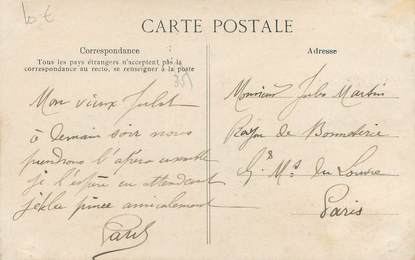 10 €
CARTE POSTALE
Correspondance
Tous les pays étrangers n'acceptent pas la
correspondance au recto, se renseigner à la poste
Adresse
Mon vieux Julot
à demain soir nous
prendrons l'apéro ensemble
je l'espère en attendant
je te la pince amicalement
Monsieur Jules Martin
Rayon de Bonneterie
Gds Mns du Louvre
Paris